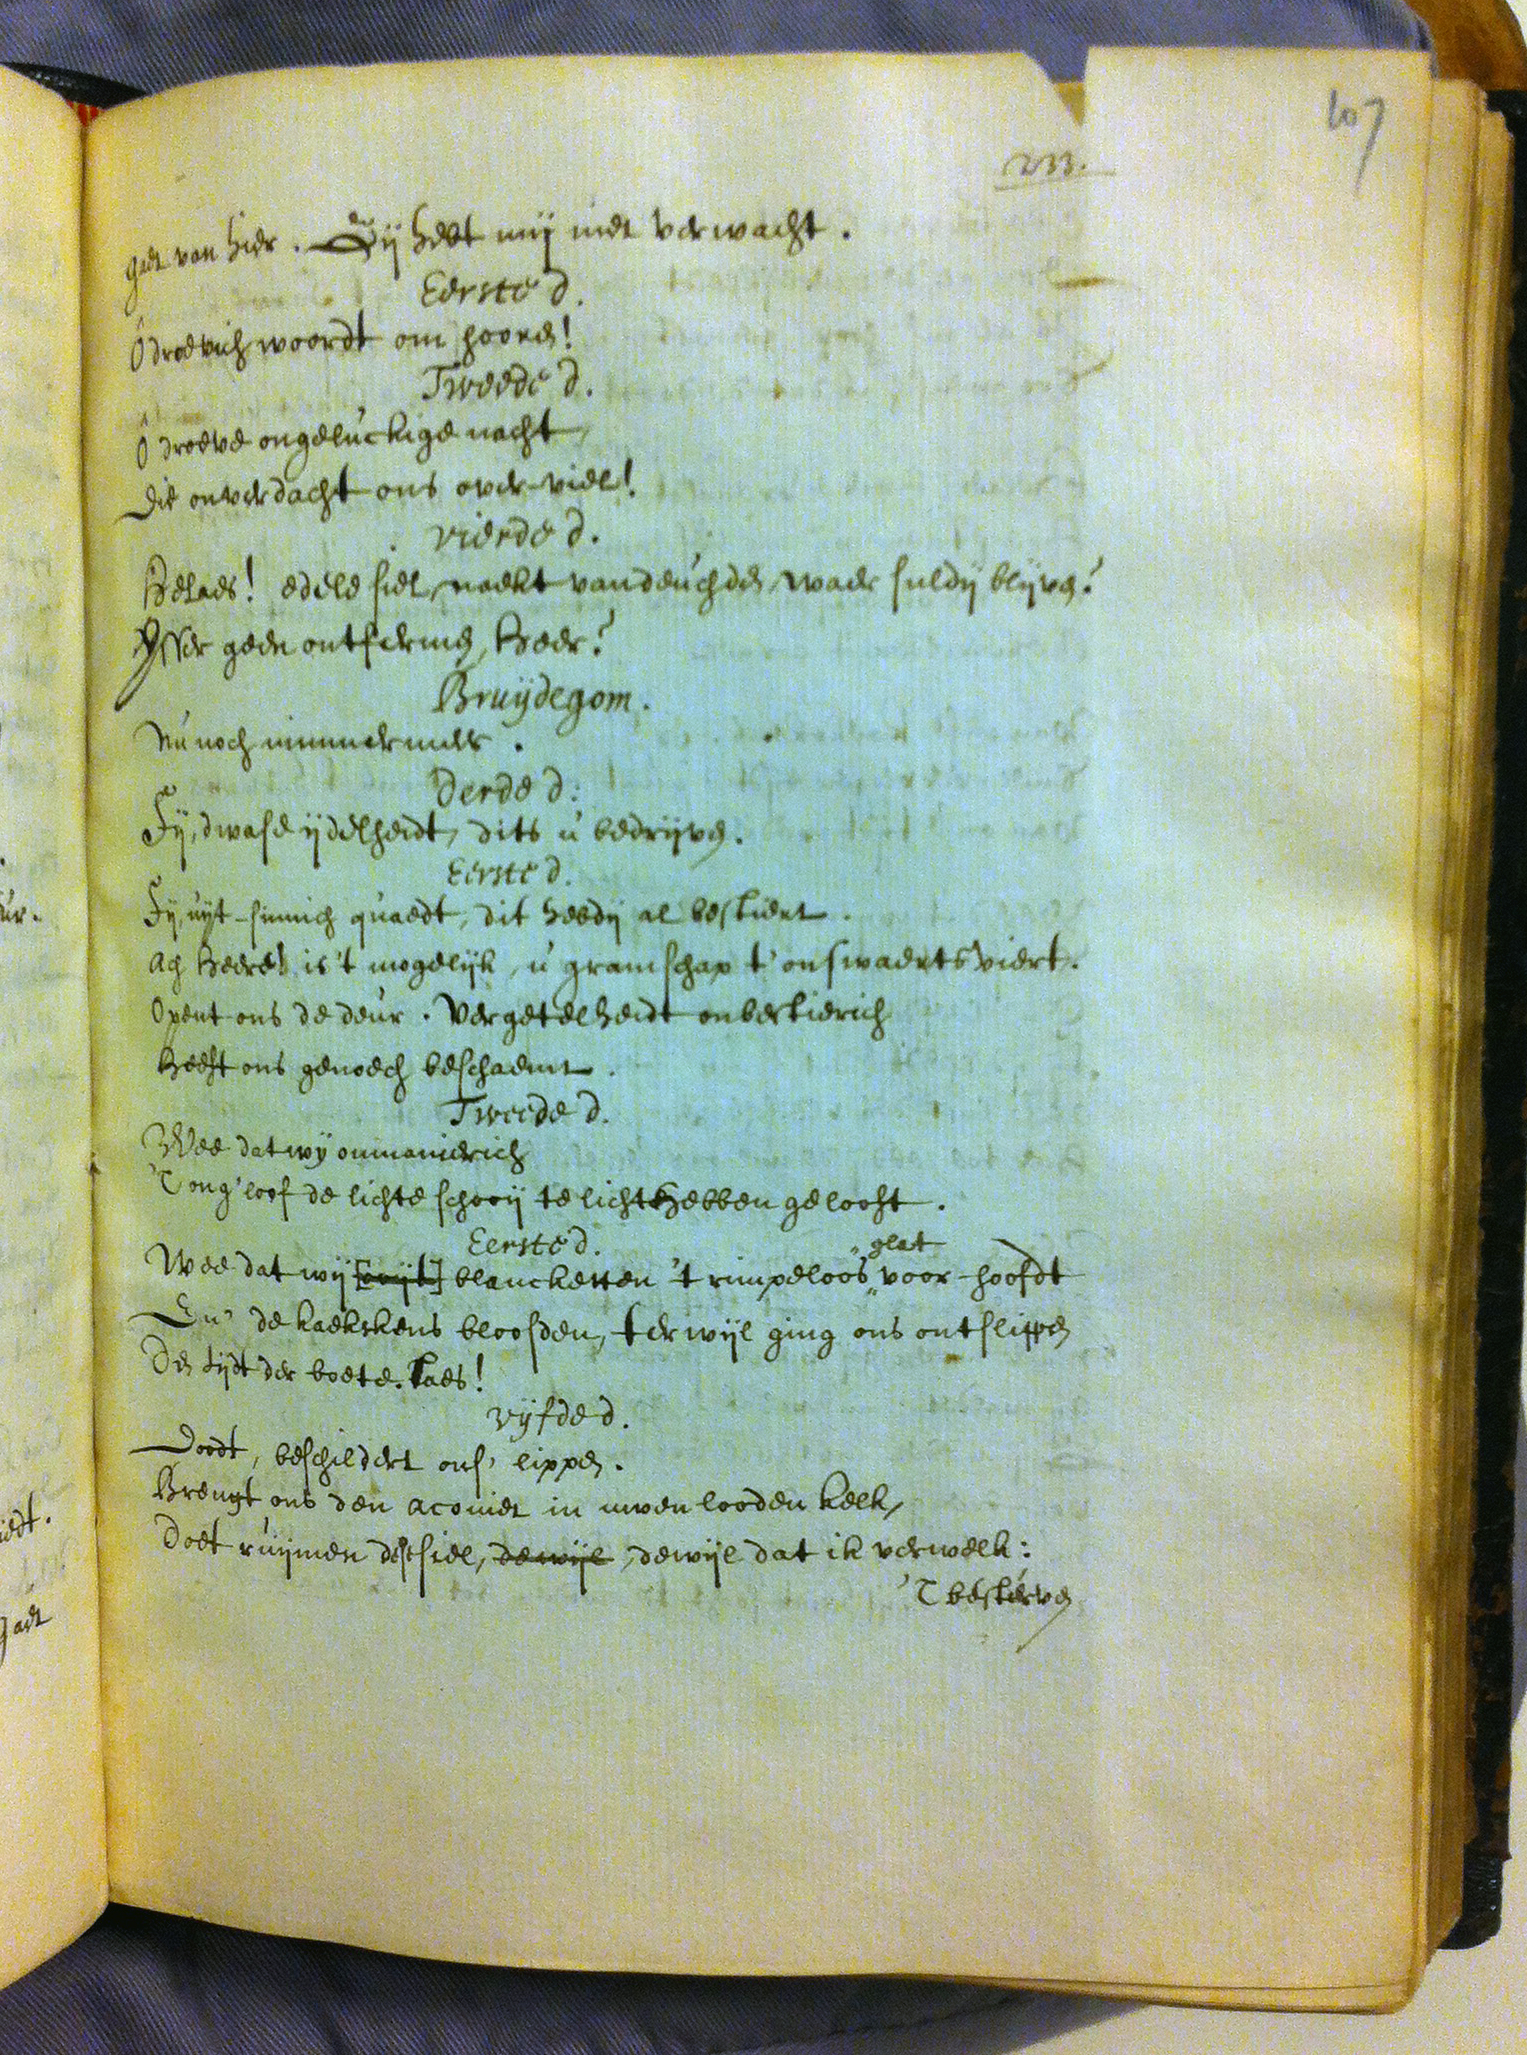 107
233.
gaet van hier. Ghij hebt mij niet verwacht.
Eerste d.
Ô droevich woordt om hooren!
Tweede d.
Ô droeve ongeluckige nacht,
Die onverdacht ons over-viel!
Vierde d.
Helaes! edele siel, naekt van deuchden, waer suldij blijven?
Isser geen ontferming, Heer?
Bruijdegom.
Nu noch nimmermeer.
Derde d:
Fij, dwase ijdelheidt, dits u bedrijven.
Eerste d.
Fij, uijt-sinnich quaedt, dit hebdij al bestiert.
Ach Heere! is 't mogelijk, u gramschap t' onswaerts viert.
Opent ons de deur. Vergetelheidt onbestierich
Heeft ons genoech beschaemt.
Tweede d.
Wee dat wij onmanierich
'T ong'loof de lichte schooij te licht hebben gelooft.
Eerste d.
glat
Wee dat wij blancketten 't rimpeloos voor-hoofdt
En' de kaekskens bloosden, terwijl ging ons ontslippen
Den tijdt der boete. Laes!
Vijfde d.
Doodt, beschildert ons' lippen.
Brengt ons den aconiet in uwen looden kelk,
Doet ruijmen dese siel, dewijl, dewijl dat ik verwelk:
'T besterven
iedt.
gaet